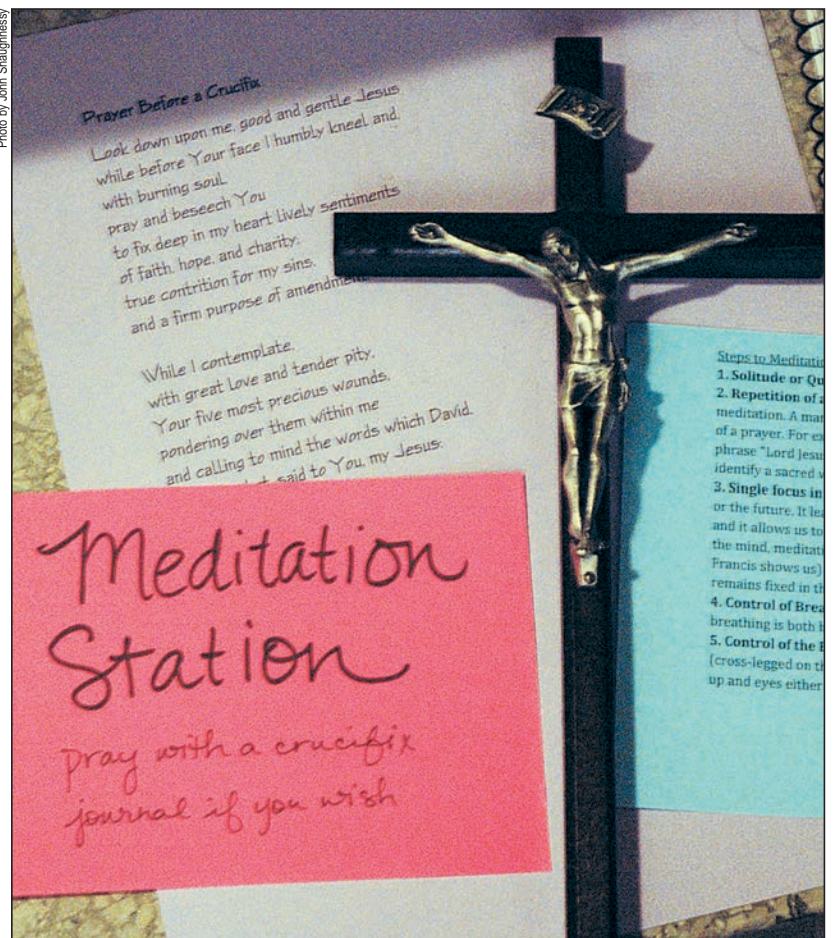 Photo by John Shaughnessy
Prayer Before a Crucifix
Look down upon me, good and gentle Jesus
while before Your face I humbly kneel and,
with burning soul,
pray and beseech You
to fix deep in my heart lively sentiments
of faith, hope, and charity,
true contrition for my sins,
and a firm purpose of amendme
While I contemplate,
with great Love and tender pity,
Your five most precious wounds,
pondering over them within me
and calling to mind the words which David,
said to You, my Jesus:
Meditation
Station
pray with a crucifix
journal if you wish
Steps to Meditatio
1. Solitude or Qu
2. Repetition of a
meditation. A man
of a prayer. For ex
phrase "Lord Jesu
identify a sacred
3. Single focus in
or the future. It lea
and it allows us to
the mind, meditati
Francis shows us)
remains fixed in th
4. Control of Brea
breathing is both
5. Control of the
(cross-legged on th
up and eyes either